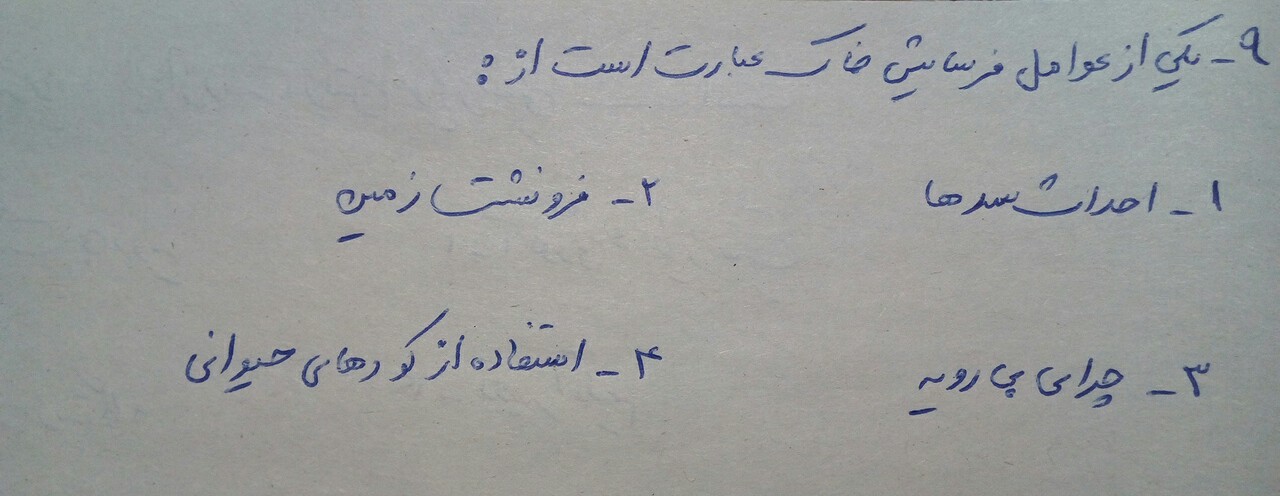 ۹- یکی از عوامل فرسایش خاک عبارت است از :
۱- احداث سدها ۲- فرونشست زمین
۳- چرای بی رویه ۴- استفاده از کودهای حیوانی